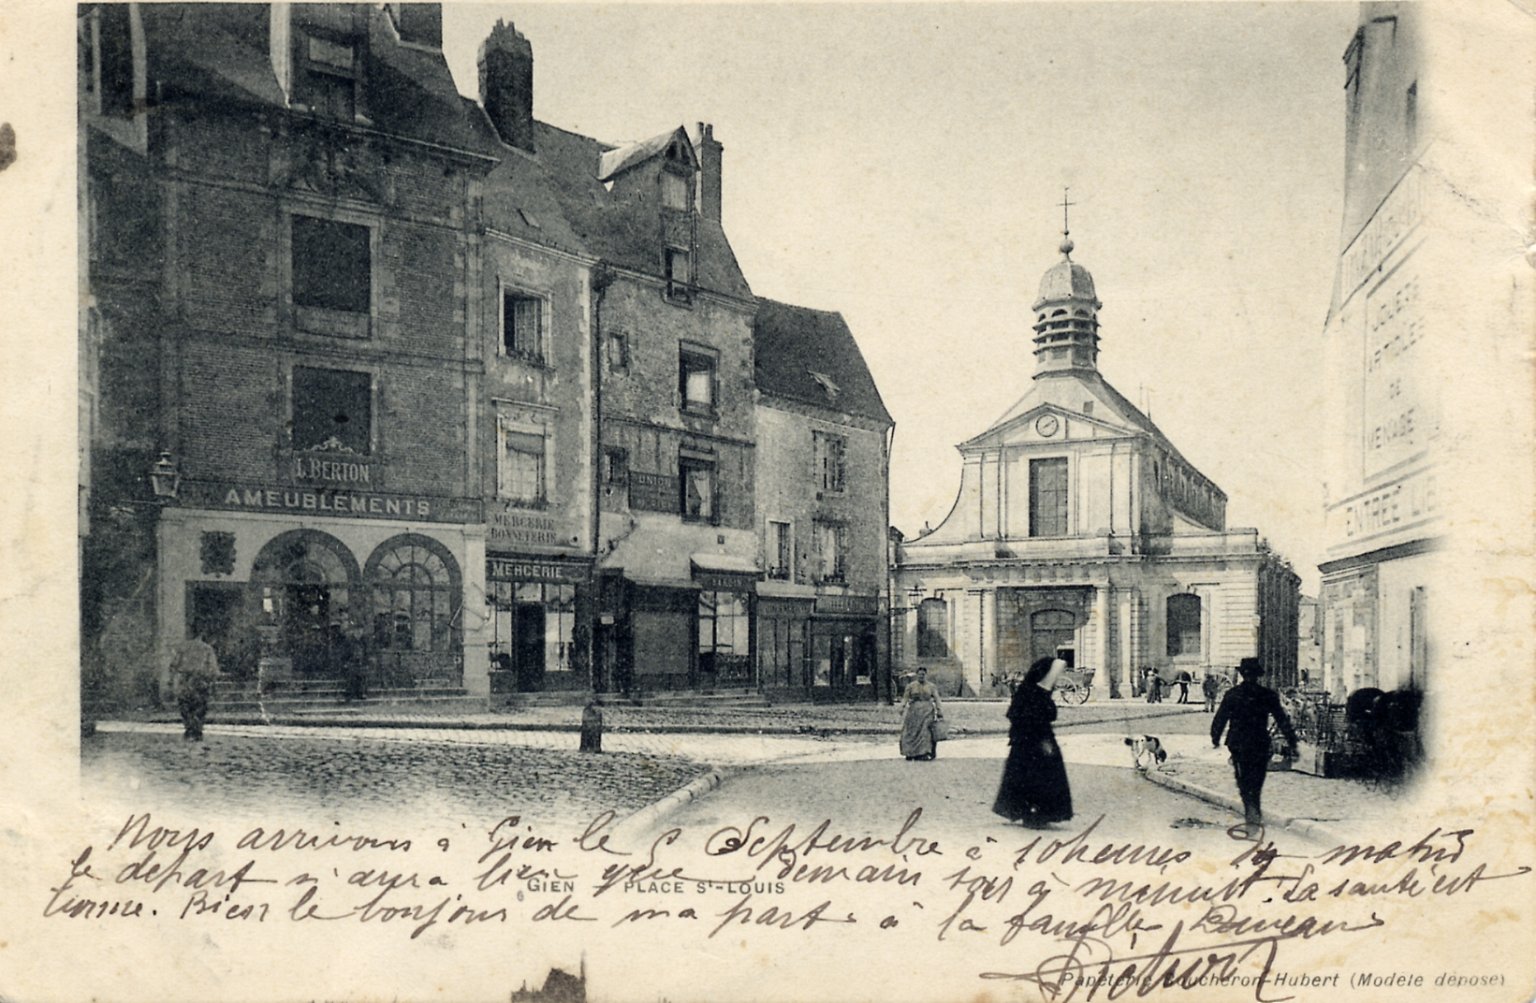 L. BERTON
AMEUBLEMENTS
MERCERIE
BONNETERIE
MERCERIE
UNION
ARTICLES
DE
MENAGE
ENTRÉE
Nous arrivons à Gien le Septembre à 10 heures du matin
le départ n'aura lieu que demain soir à minuit. La santé est
bonne. Bien le bonjour de ma part à la famille
GIEN PLACE ST-LOUIS
Papeterie Boucheron-Hubert (Modèle déposé)